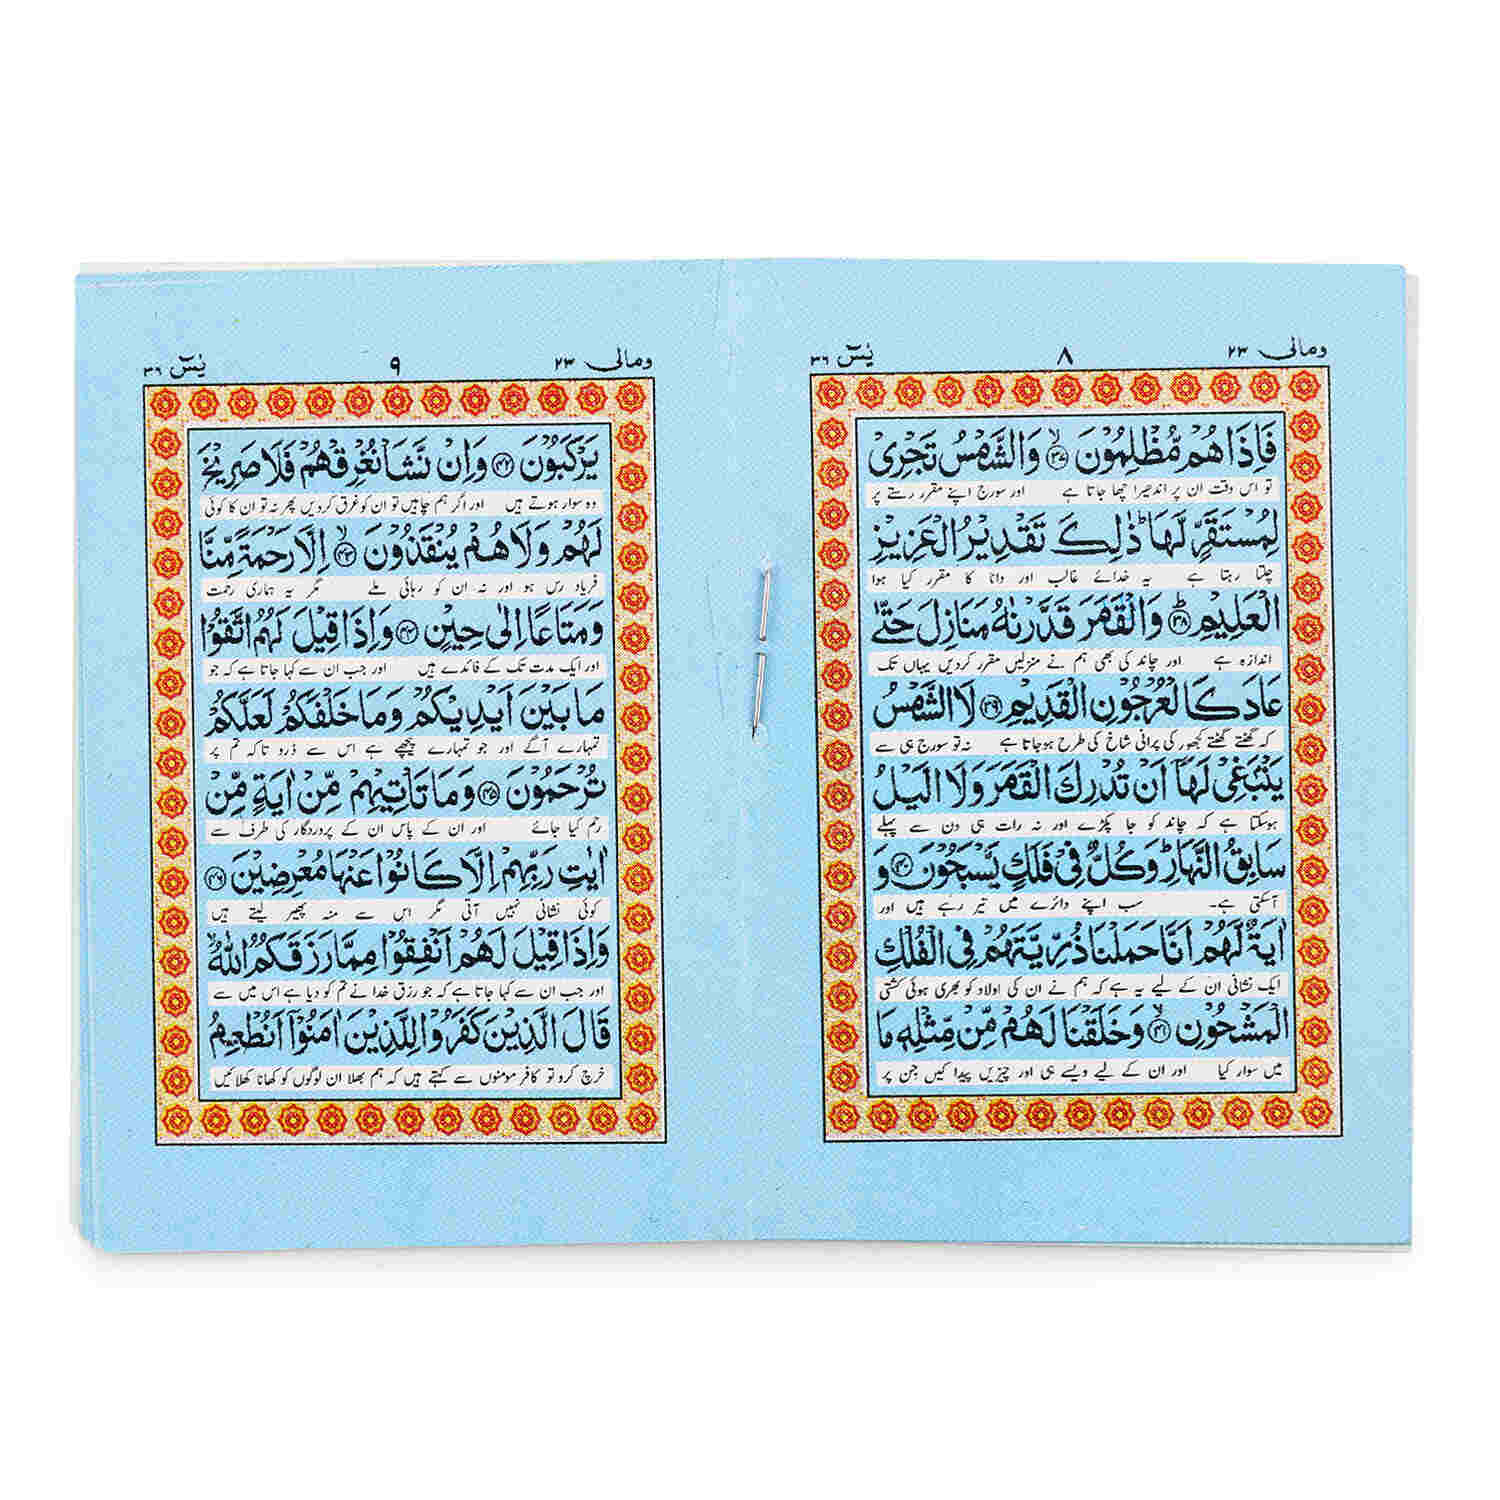 یٰسٓ ۳۶ ۸ ومالی ۲۳
فَاِذَا هُمْ مُّظْلِمُوْنَ ۳۷ وَالشَّمْسُ تَجْرِیْ
تو اس وقت ان پر اندھیرا چھا جاتا ہے اور سورج اپنے مقرر رستے پر
لِمُسْتَقَرٍّ لَّهَا ؕ ذٰلِكَ تَقْدِيْرُ الْعَزِيْزِ
چلتا رہتا ہے یہ خدائے غالب اور دانا کا مقرر کیا ہوا
الْعَلِيْمِ ؕ ۳۸ وَالْقَمَرَ قَدَّرْنٰهُ مَنَازِلَ حَتّٰى
اندازہ ہے اور چاند کی بھی ہم نے منزلیں مقرر کردیں یہاں تک
عَادَ كَالْعُرْجُوْنِ الْقَدِيْمِ ۳۹ لَا الشَّمْسُ
کہ گھٹتے گھٹتے کھجور کی پرانی شاخ کی طرح ہوجاتا ہے نہ تو سورج ہی سے
يَنْۢبَغِىْ لَهَاۤ اَنْ تُدْرِكَ الْقَمَرَ وَلَا الَّيْلُ
ہوسکتا ہے کہ چاند کو جا پکڑے اور نہ رات ہی دن سے پہلے
سَابِقُ النَّهَارِ ؕ وَكُلٌّ فِىْ فَلَكٍ يَّسْبَحُوْنَ ۴۰ وَ
آسکتی ہے۔ سب اپنے دائرے میں تیر رہے ہیں اور
اٰيَةٌ لَّهُمْ اَنَّا حَمَلْنَا ذُرِّيَّتَهُمْ فِى الْفُلْكِ
ایک نشانی ان کے لیے یہ ہے کہ ہم نے ان کی اولاد کو بھری ہوئی کشتی
الْمَشْحُوْنِ ۴۱ وَخَلَقْنَا لَهُمْ مِّنْ مِّثْلِهٖ مَا
میں سوار کیا اور ان کے لیے ویسے ہی اور چیزیں پیدا کیں جن پر
یٰسٓ ۳۶ ۹ ومالی ۲۳
يَرْكَبُوْنَ ۴۲ وَاِنْ نَّشَاْ نُغْرِقْهُمْ فَلَا صَرِيْخَ
وہ سوار ہوتے ہیں اور اگر ہم چاہیں تو ان کو غرق کردیں پھر نہ تو ان کا کوئی
لَهُمْ وَلَا هُمْ يُنْقَذُوْنَ ۴۳ اِلَّا رَحْمَةً مِّنَّا
فریاد رس ہو اور نہ ان کو رہائی ملے مگر یہ ہماری رحمت
وَمَتَاعًا اِلٰى حِيْنٍ ۴۴ وَاِذَا قِيْلَ لَهُمُ اتَّقُوْا
اور ایک مدت تک کے فائدے ہیں اور جب ان سے کہا جاتا ہے کہ جو
مَا بَيْنَ اَيْدِيْكُمْ وَمَا خَلْفَكُمْ لَعَلَّكُمْ
تمہارے آگے اور جو تمہارے پیچھے ہے اس سے ڈرو تاکہ تم پر
تُرْحَمُوْنَ ۴۵ وَمَا تَاْتِيْهِمْ مِّنْ اٰيَةٍ مِّنْ
رحم کیا جائے اور ان کے پاس ان کے پروردگار کی طرف سے
اٰيٰتِ رَبِّهِمْ اِلَّا كَانُوْا عَنْهَا مُعْرِضِيْنَ ۴۶
کوئی نشانی نہیں آتی مگر اس سے منہ پھیر لیتے ہیں
وَاِذَا قِيْلَ لَهُمْ اَنْفِقُوْا مِمَّا رَزَقَكُمُ اللّٰهُ ۙ
اور جب ان سے کہا جاتا ہے کہ جو رزق خدا نے تم کو دیا ہے اس میں سے
قَالَ الَّذِيْنَ كَفَرُوْا لِلَّذِيْنَ اٰمَنُوْۤا اَنُطْعِمُ
خرچ کرو تو کافر مومنوں سے کہتے ہیں کہ ہم بھلا ان لوگوں کو کھانا کھلائیں